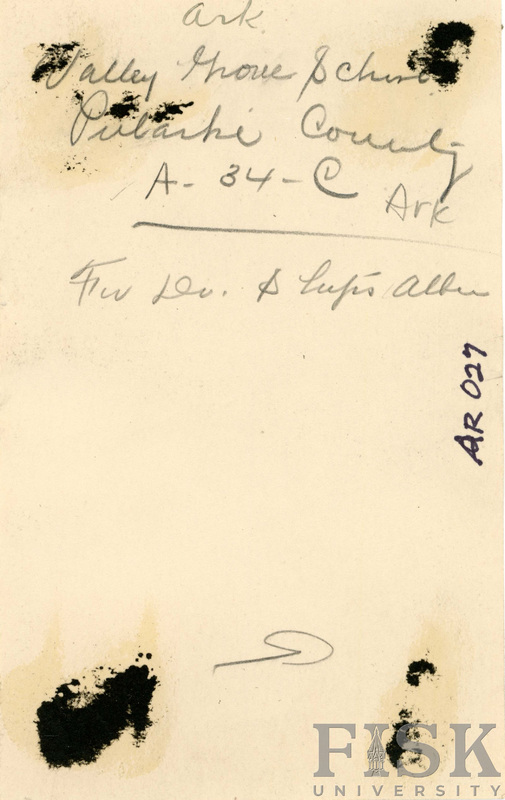 Ark.
Valley Grove School
Pulaski County
A-34-C
Ark
For Dr. S
AR 027
FISK
UNIVERSITY